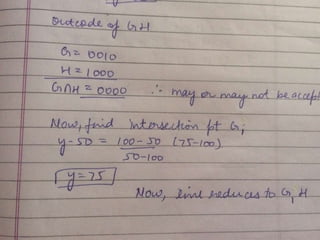 outcode of GH
G = 0010
H = 1000
G∩H = 0000 ∴ may or may not be accept
Now, find intersection pt G;
y-50 = 100-50 (75-100)
50-100
y=75
Now, line reduces to G, H